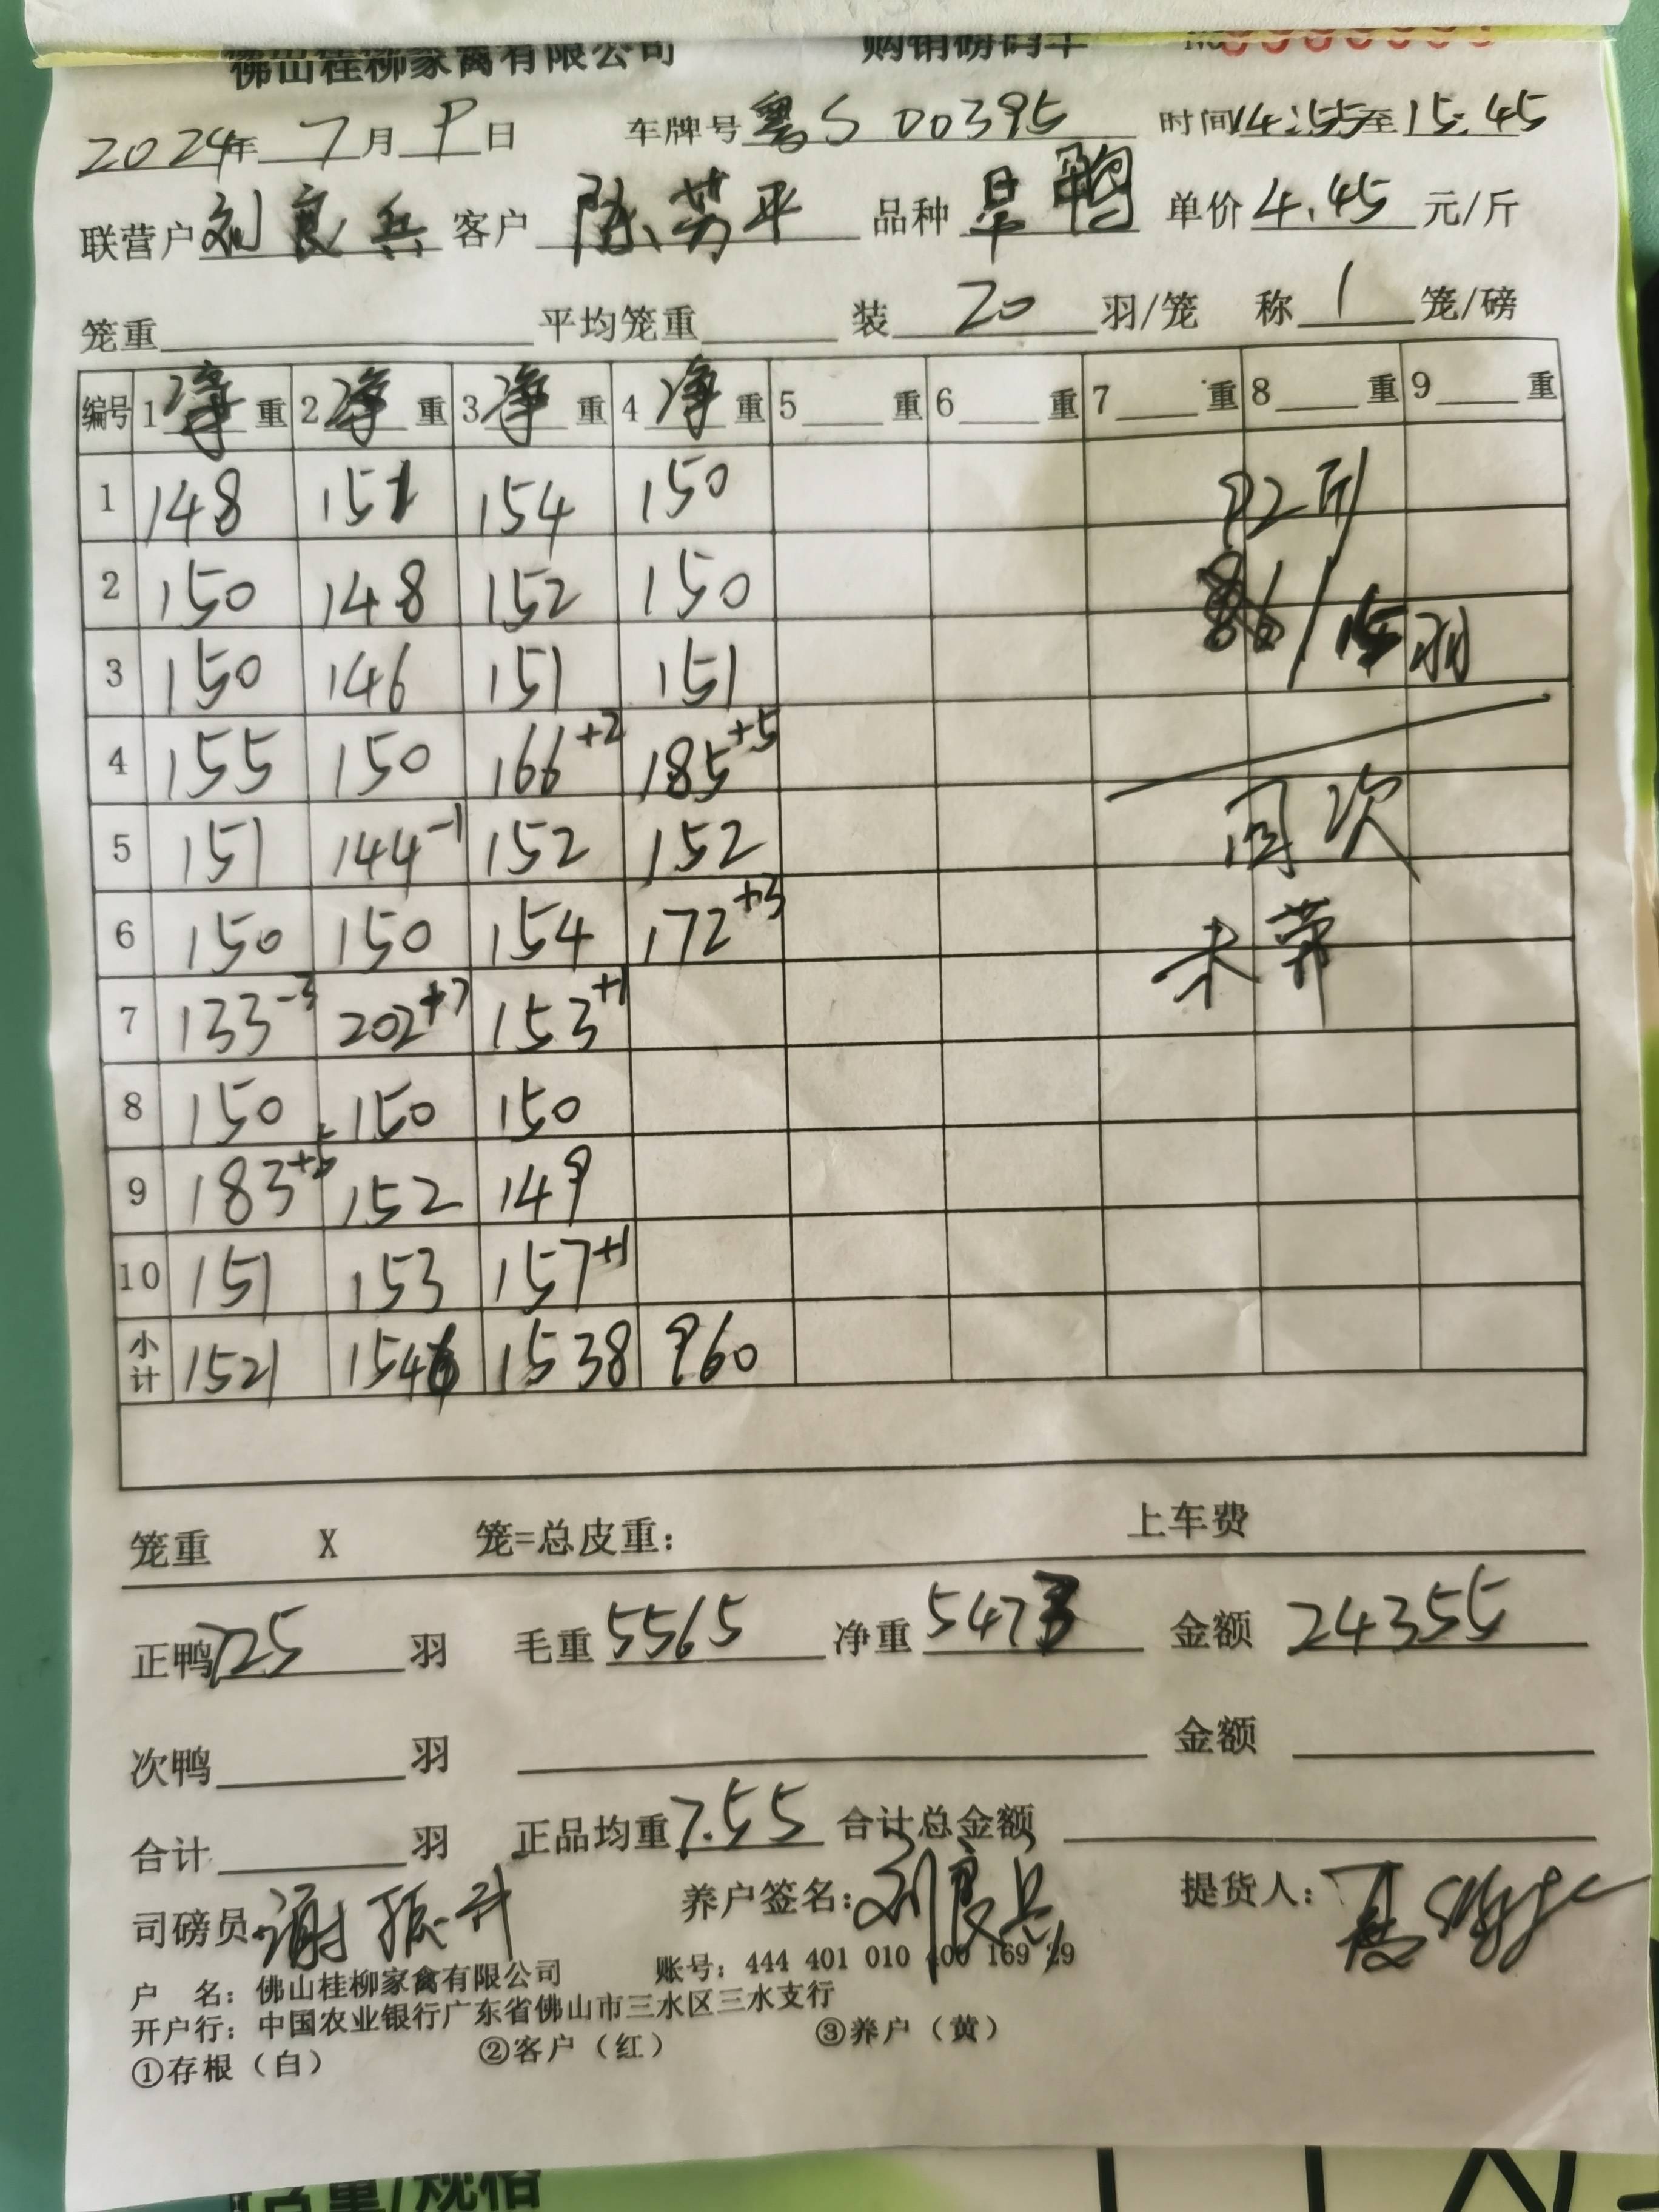 佛山桂柳家禽有限公司 购销磅码单
2024年 7月 9日 车牌号 粤S 00395 时间 14:55至15:45
联营户 刘良兵 客户 陈芳平 品种 旱鸭 单价 4.45 元/斤
笼重 平均笼重 装 20 羽/笼 称 1 笼/磅
编号 1 净 重 2 净 重 3 净 重 4 净 重 5 重 6 重 7 重 8 重 9 重
1 148 151 154 150 92斤
2 150 148 152 150
3 150 146 151 151 羽
4 155 150 166+2 185+5
5 151 144-1 152 152 次
6 150 150 154 172+3
7 133-3 202+7 153+1
8 150 150 150
9 183+5 152 149
10 151 153 157+1
小计 1521 1546 1538 960
笼重 X 笼=总皮重: 上车费
正鸭 725 羽 毛重 5565 净重 5473 金额 24355
次鸭 羽 金额
合计 羽 正品均重 7.55 合计总金额
司磅员 谢振升 养户签名: 刘良兵 提货人:
户 名: 佛山桂柳家禽有限公司 账号: 444 401 010 400 169 29
开户行: 中国农业银行广东省佛山市三水区三水支行
①存根(白) ②客户(红) ③养户(黄)